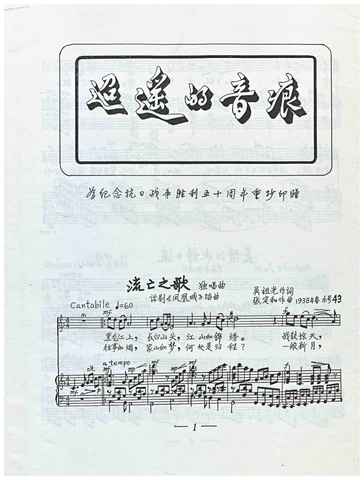 迢遥的音痕
为纪念抗日战争胜利五十周年重抄印赠
流亡之歌 独唱曲
话剧《凤凰城》插曲
吴祖光作词
张定和作曲 1938年春
Cantabile ♩=60
mf
黑龙江上，长白山头，江山如锦绣。
往事如烟，家山如梦，何处是归程？
一眼新月，
a tempo
mf
— 1 —